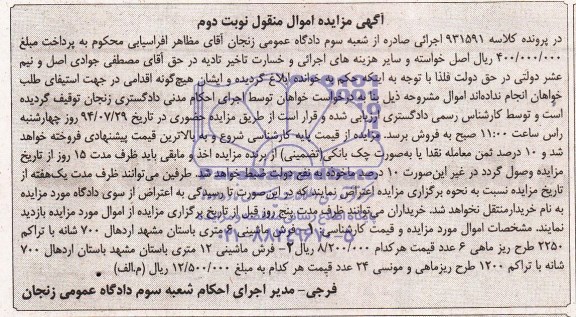 آگهی مزایده اموال منقول نوبت دوم
در پرونده کلاسه ۹۳۱۵۹۱ اجرائی صادره از شعبه سوم دادگاه عمومی زنجان آقای مظاهر افراسیابی محکوم به پرداخت مبلغ
۴۰۰/۰۰۰/۰۰۰ ریال اصل خواسته و سایر هزینه های اجرائی و خسارت تاخیر تادیه در حق آقای مصطفی جوادی اصل و نیم
عشر دولتی در حق دولت فلذا با توجه به اینکه حکم به خوانده ابلاغ گردیده و ایشان هیچ‌گونه اقدامی در جهت استیفای طلب
خواهان انجام نداده‌اند اموال مشروحه ذیل با درخواست خواهان توسط اجرای احکام مدنی دادگستری زنجان توقیف گردیده
است و توسط کارشناس رسمی دادگستری ارزیابی شده و قرار است از طریق مزایده حضوری در تاریخ ۹۴/۰۷/۲۹ روز چهارشنبه
راس ساعت ۱۱:۰۰ صبح به فروش برسد. مزایده از قیمت پایه کارشناسی شروع و به بالاترین قیمت پیشنهادی فروخته خواهد
شد و ۱۰ درصد ثمن معامله نقدا یا به‌صورت چک بانکی (تضمینی) از برنده مزایده اخذ و مابقی باید ظرف مدت ۱۵ روز از تاریخ
مزایده وصول گردد در غیر این‌صورت ۱۰ درصد ماخوذه به نفع دولت ضبط خواهد شد. طرفین می‌توانند ظرف مدت یک‌هفته از
تاریخ مزایده نسبت به نحوه برگزاری مزایده اعتراض نمایند که در این‌صورت تا رسیدگی به اعتراض از سوی دادگاه مورد مزایده
به نام خریدار منتقل نخواهد شد. خریداران می‌توانند ظرف مدت پنج روز قبل از تاریخ برگزاری مزایده از اموال مورد مزایده بازدید
نمایند. مشخصات اموال مورد مزایده و قیمت کارشناسی: ۱- فرش ماشینی ۶ متری باستان مشهد اردهال ۷۰۰ شانه با تراکم
۲۲۵۰ طرح ریز ماهی ۶ عدد قیمت هرکدام ۸/۲۰۰/۰۰۰ ریال ۲- فرش ماشینی ۱۲ متری باستان مشهد باستان اردهال ۷۰۰
شانه با تراکم ۱۲۰۰ طرح ریزماهی و مونسی ۲۴ عدد قیمت هر کدام به مبلغ ۱۲/۵۰۰/۰۰۰ ریال (م.الف)
فرجی- مدیر اجرای احکام شعبه سوم دادگاه عمومی زنجان